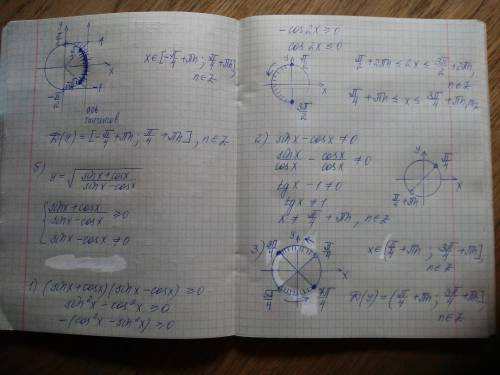 x∈[-π/4+πn; π/4+πn],
n∈Z
ось
тангенсов
D(y)=[-π/4+πn; π/4+πn], n∈Z
б)
y=√((sinx+cosx)/(sinx-cosx))
{(sinx+cosx)/(sinx-cosx)≥0
sinx-cosx≠0
1) (sinx+cosx)(sinx-cosx)≥0
sin²x-cos²x≥0
-(cos²x-sin²x)≥0
-cos2x≥0
cos2x≤0
π/2
3π/2
π/2+2πn≤2x≤3π/2+2πn,
n∈Z
π/4+πn≤x≤3π/4+πn, n∈Z
2) sinx-cosx≠0
sinx/cosx-cosx/cosx≠0
tgx-1≠0
tgx≠1
x≠π/4+πn, n∈Z
y
π/4
x
π/4+πn
3)
3π/4
y
π/4
x
5π/4
7π/4
x∈(π/4+πn; 3π/4+πn],
n∈Z
D(y)=(π/4+πn; 3π/4+πn],
n∈Z